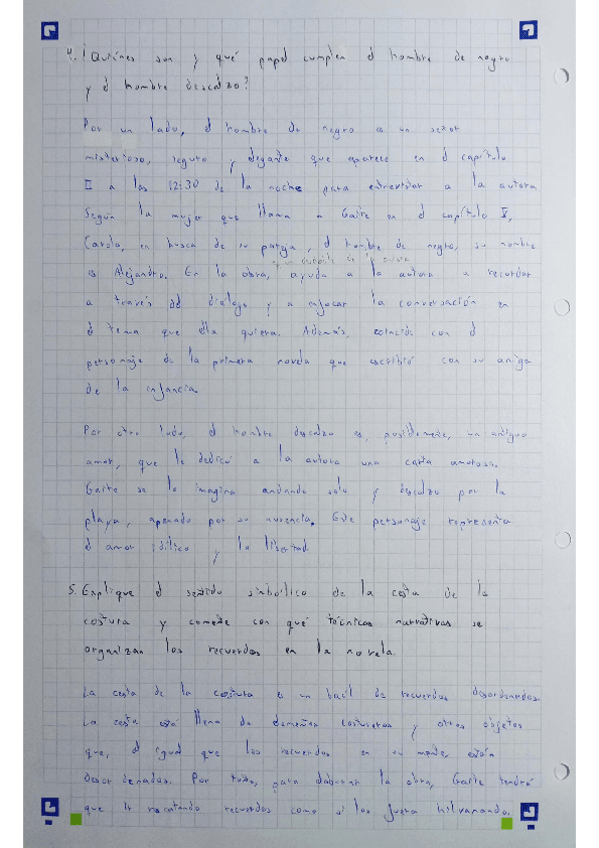 4. ¿Quiénes son y qué papel cumplen el hombre de negro
y el hombre descalzo?
Por un lado, el hombre de negro es un señor
misterioso, seguro y elegante que aparece en el capítulo
II a las 12:30 de la noche para entrevistar a la autora
Según la mujer que llama a Gaite en el capítulo V,
Carola, en busca de su pareja, el hombre de negro, su nombre
es Alejandro. En la obra, ayuda a la autora a recordar
a través del diálogo y a enfocar la conversación en
el tema que ella quiera. Además, coincide con el
personaje de la primera novela que escribió con su amiga
de la infancia.
Por otro lado, el hombre descalzo es, posiblemente, un antiguo
amor, que le dedicó a la autora una carta amorosa.
Gaite se lo imagina andando solo y descalzo por la
playa, apenado por su ausencia. Este personaje representa
el amor idílico y la libertad
5. Explique el sentido simbólico de la cesta de la
costura y comente con qué técnicas narrativas se
organizan los recuerdos en la novela.
La cesta de la costura es un baúl de recuerdos desordenados.
La cesta está llena de costureros y otros objetos
que, al igual que los recuerdos en su mente, están
desordenados. Por tanto, para la obra, Gaite tendrá
que ir rescatando recuerdos como si los fuera hilvanando.